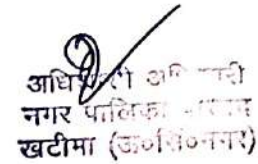 अधिशासी अधिकारी
नगर पालिका परिषद
खटीमा (ऊ०सिं०नगर)